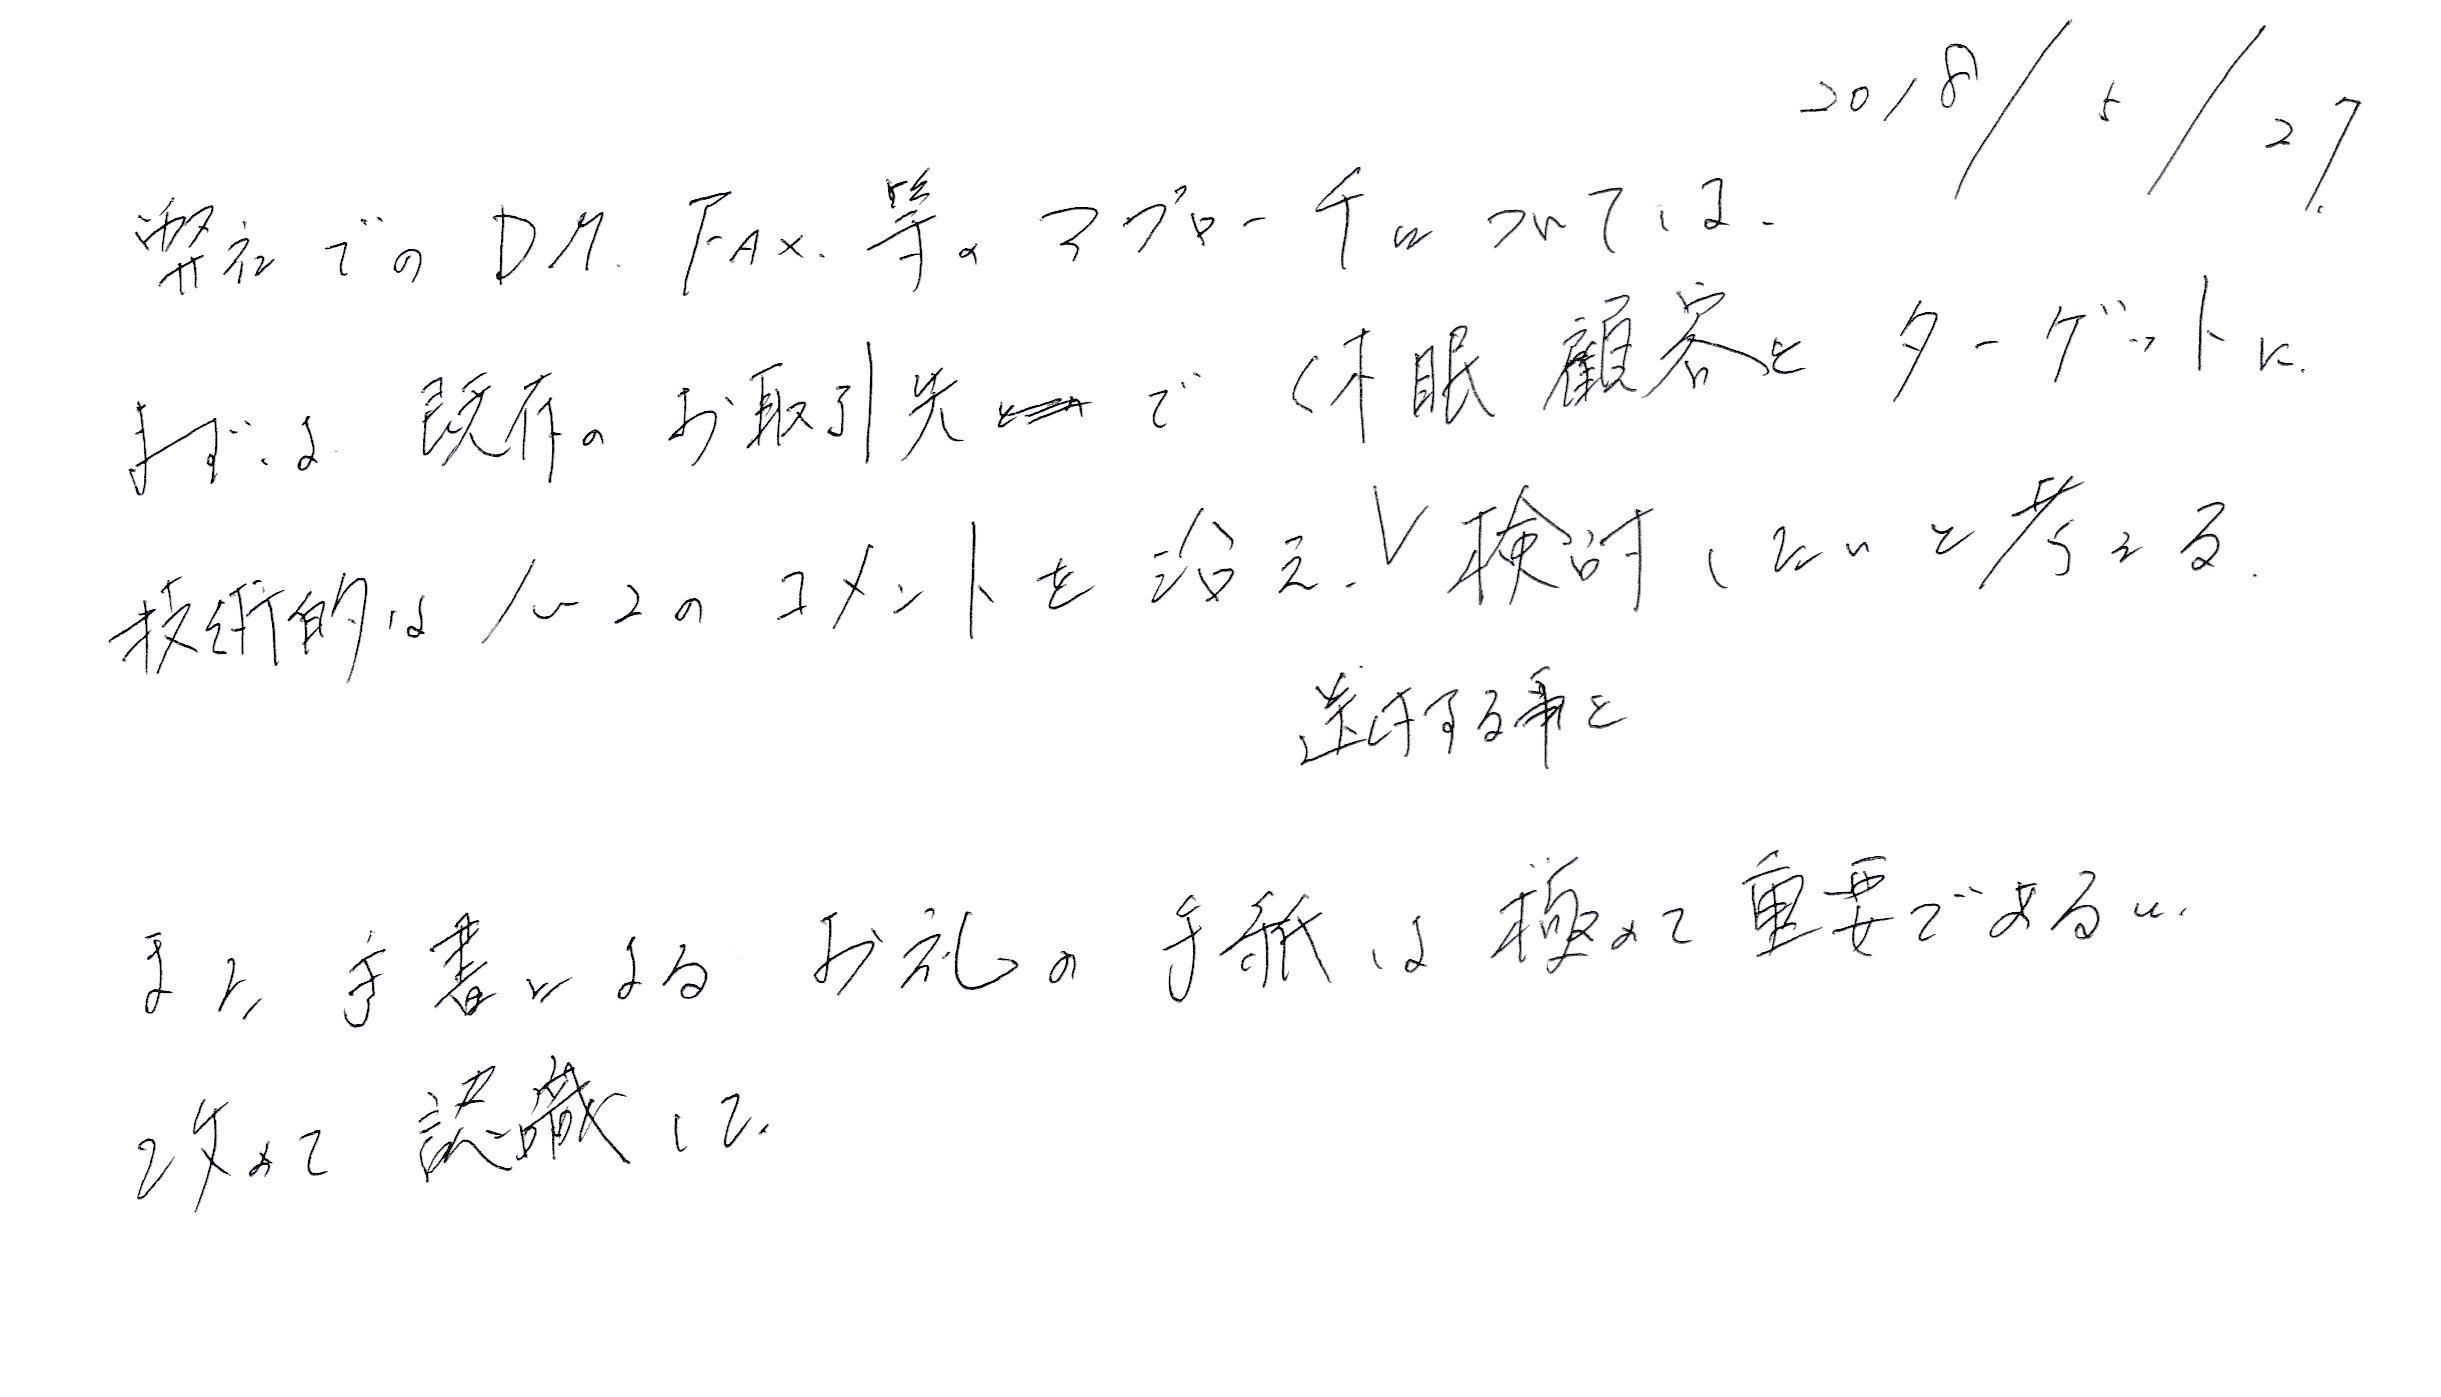 2018/5/27
弊社でのDM、FAX、等のアプローチについては、
まずは既存のお取引先で休眠顧客をターゲットに、
技術的は1〜2のコメントを沿え、V検討したいと考える。
送付する事を
また手書による お礼の手紙は極めて重要であると、
改めて認識した。